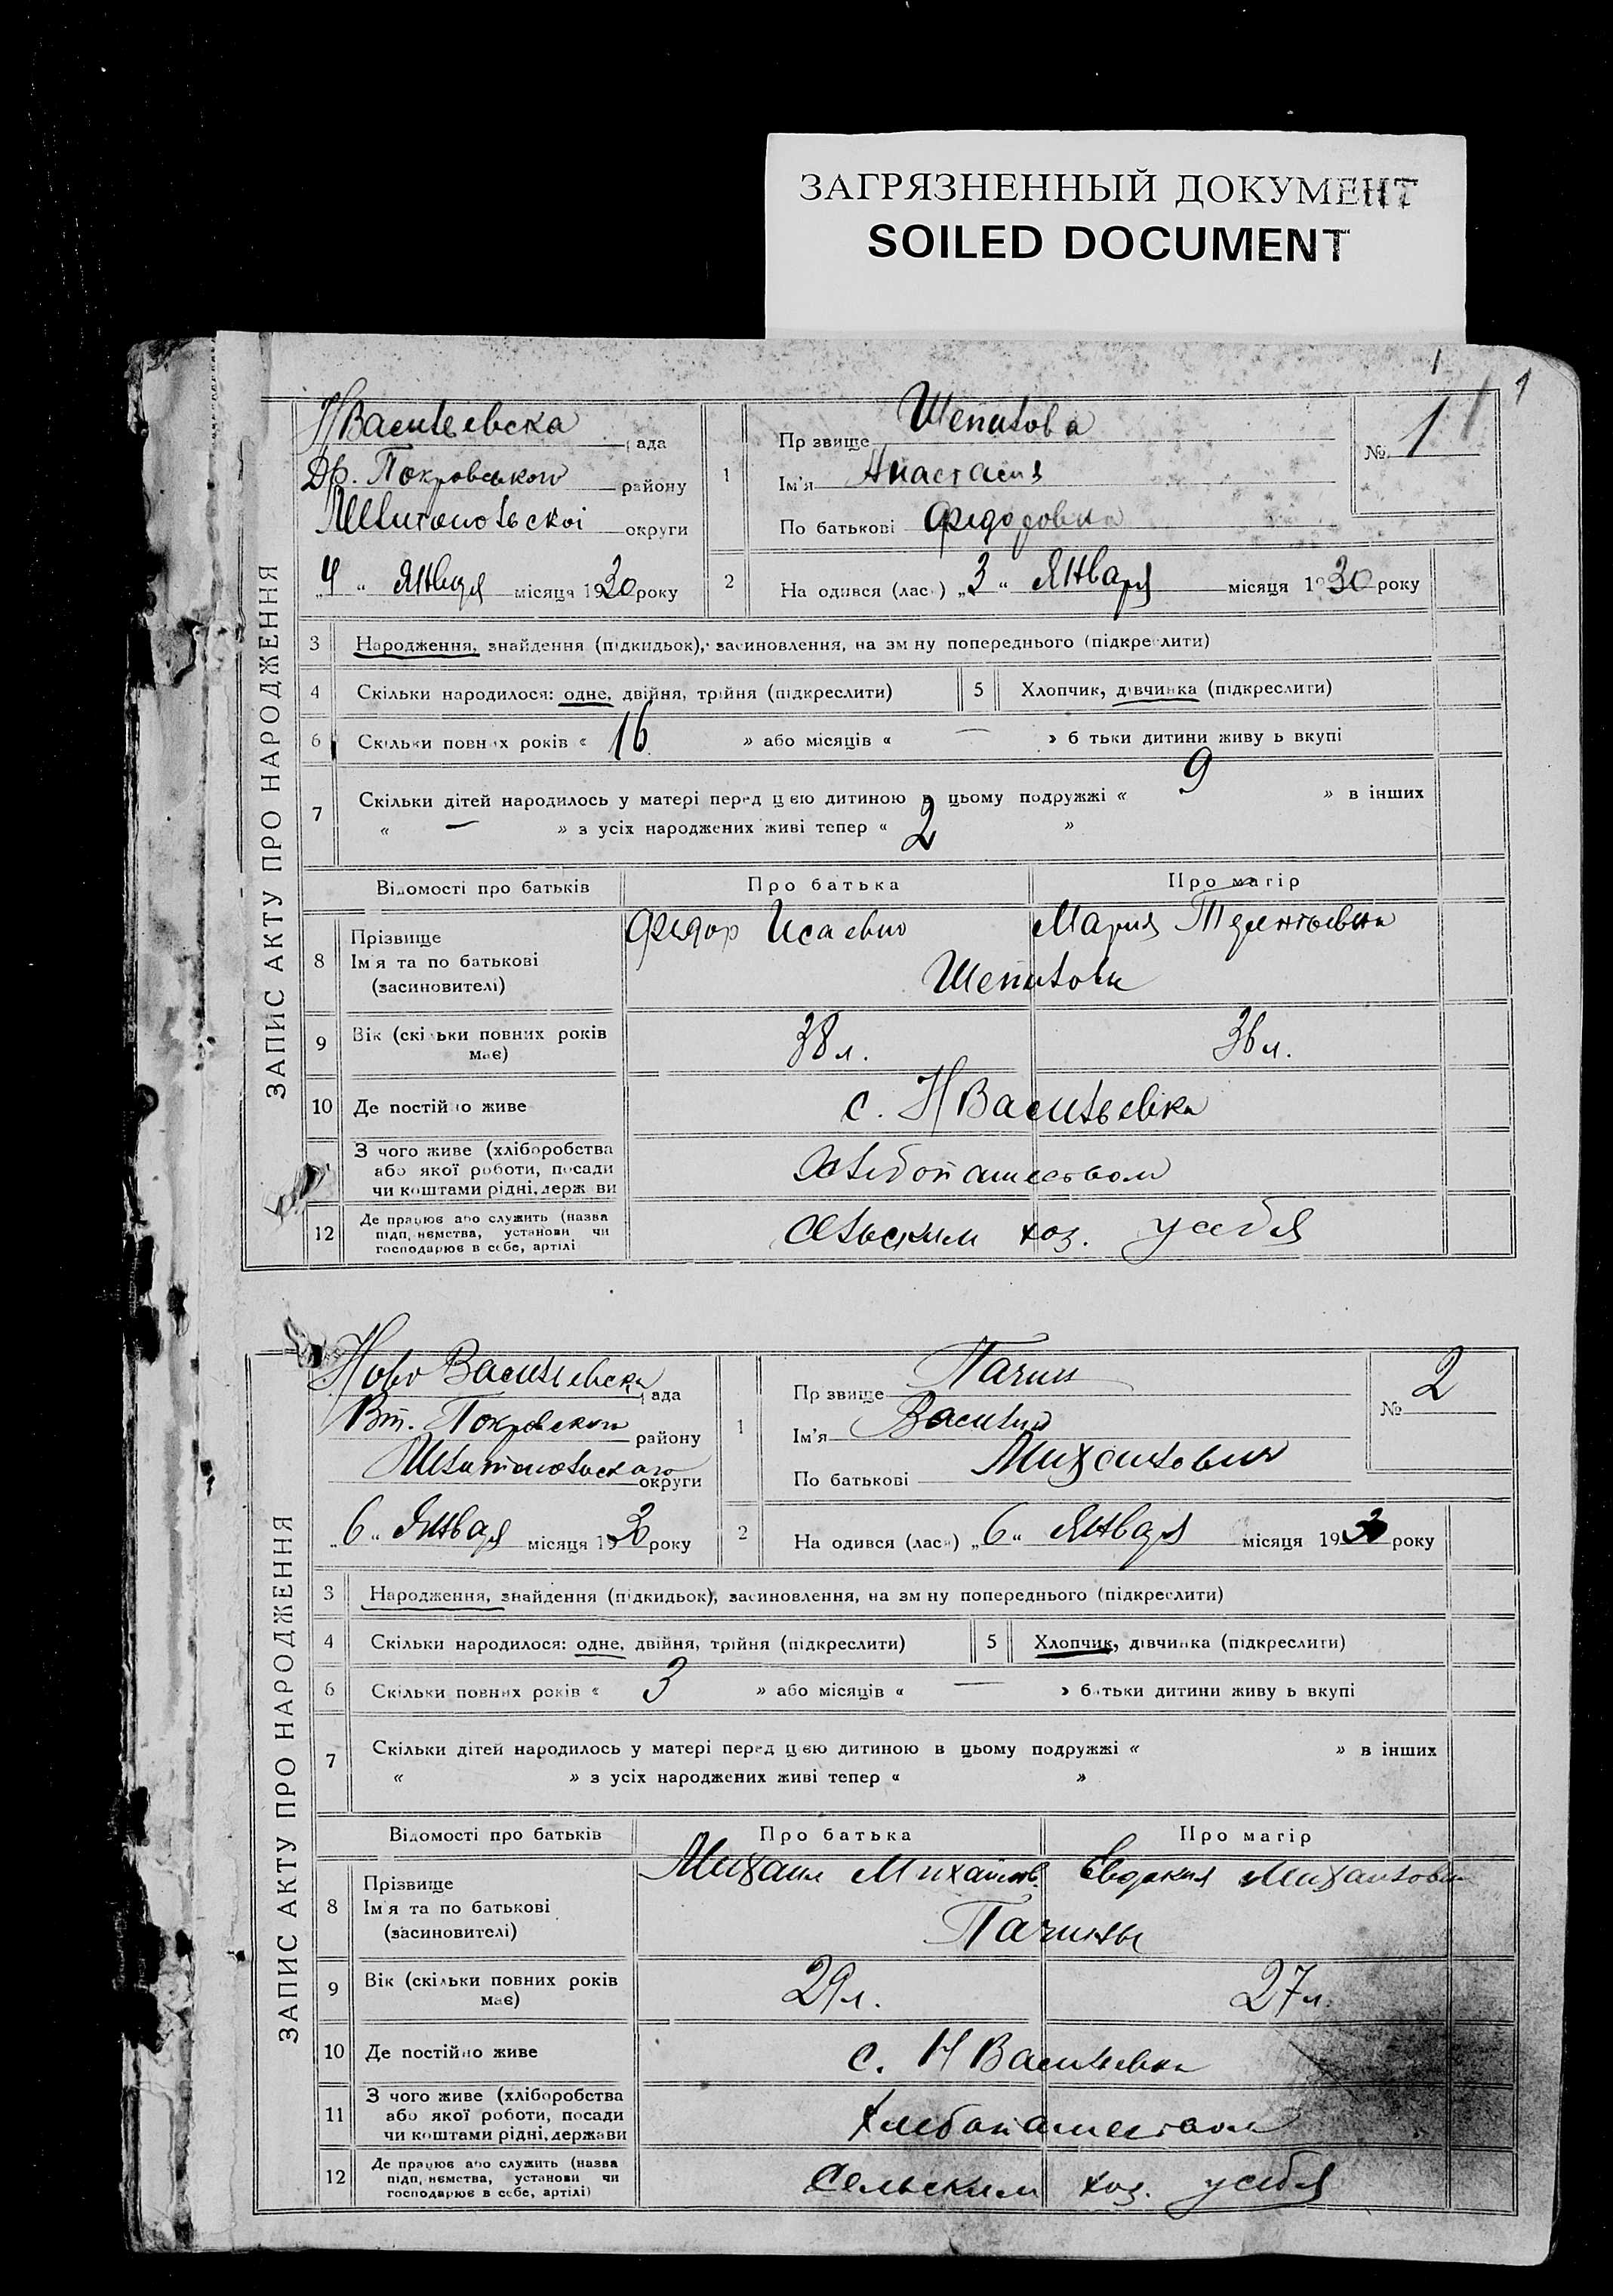 ЗАГРЯЗНЕННЫЙ ДОКУМЕНТ
SOILED DOCUMENT
1
1
ЗАПИС АКТУ ПРО НАРОДЖЕННЯ
НВасильевска рада
Покровського району
округи
"4" Января місяця 1930 року
1
Прізвище Шепилова
Ім'я Анастасия
По батькові Федоровна
№ 1
2
На одився (лась) "3" Января місяця 1930 року
3 Народження, знайдення (підкидьок), засиновлення, на зміну попереднього (підкреслити)
4 Скільки народилося: одне, двійня, трійня (підкреслити)
5 Хлопчик, дівчинка (підкреслити)
6 Скільки повних років « 16 » або місяців « — » батьки дитини живуть вкупі
7 Скільки дітей народилось у матері перед цією дитиною в цьому подружжі « 9 » в інших
« — » з усіх народжених живі тепер « 2 »
Відомості про батьків
Про батька
Про матір
8 Прізвище
Ім'я та по батькові
(засиновителі)
Федор Исаевич
Мария Терентьевна
Шепиловы
9 Вік (скільки повних років
має)
38 л.
36 л.
10 Де постійно живе
с. НВасильевка
З чого живе (хліборобства
або якої роботи, посади
чи коштами рідні, держави
Хлебопашеством
12 Де працює або служить (назва
підприємства, установи чи
господарює в себе, артілі
Сельским хоз. у себя
ЗАПИС АКТУ ПРО НАРОДЖЕННЯ
Ново Васильевска рада
Покровского району
округи
"6" Января місяця 1930 року
1
Прізвище Пачин
Ім'я Василий
По батькові Михайлович
№ 2
2
На одився (лась) "6" Января місяця 1930 року
3 Народження, знайдення (підкидьок), засиновлення, на зміну попереднього (підкреслити)
4 Скільки народилося: одне, двійня, трійня (підкреслити)
5 Хлопчик, дівчинка (підкреслити)
6 Скільки повних років « 3 » або місяців « — » батьки дитини живуть вкупі
7 Скільки дітей народилось у матері перед цією дитиною в цьому подружжі « » в інших
« » з усіх народжених живі тепер « »
Відомості про батьків
Про батька
Про матір
8 Прізвище
Ім'я та по батькові
(засиновителі)
Михаил Михайлов.
Евдокия Михайловна
Пачины
9 Вік (скільки повних років
має)
29 л.
27 л.
10 Де постійно живе
с. НВасильевка
11 З чого живе (хліборобства
або якої роботи, посади
чи коштами рідні, держави
Хлебопашеством
12 Де працює або служить (назва
підприємства, установи чи
господарює в себе, артілі)
Сельским хоз. у себя